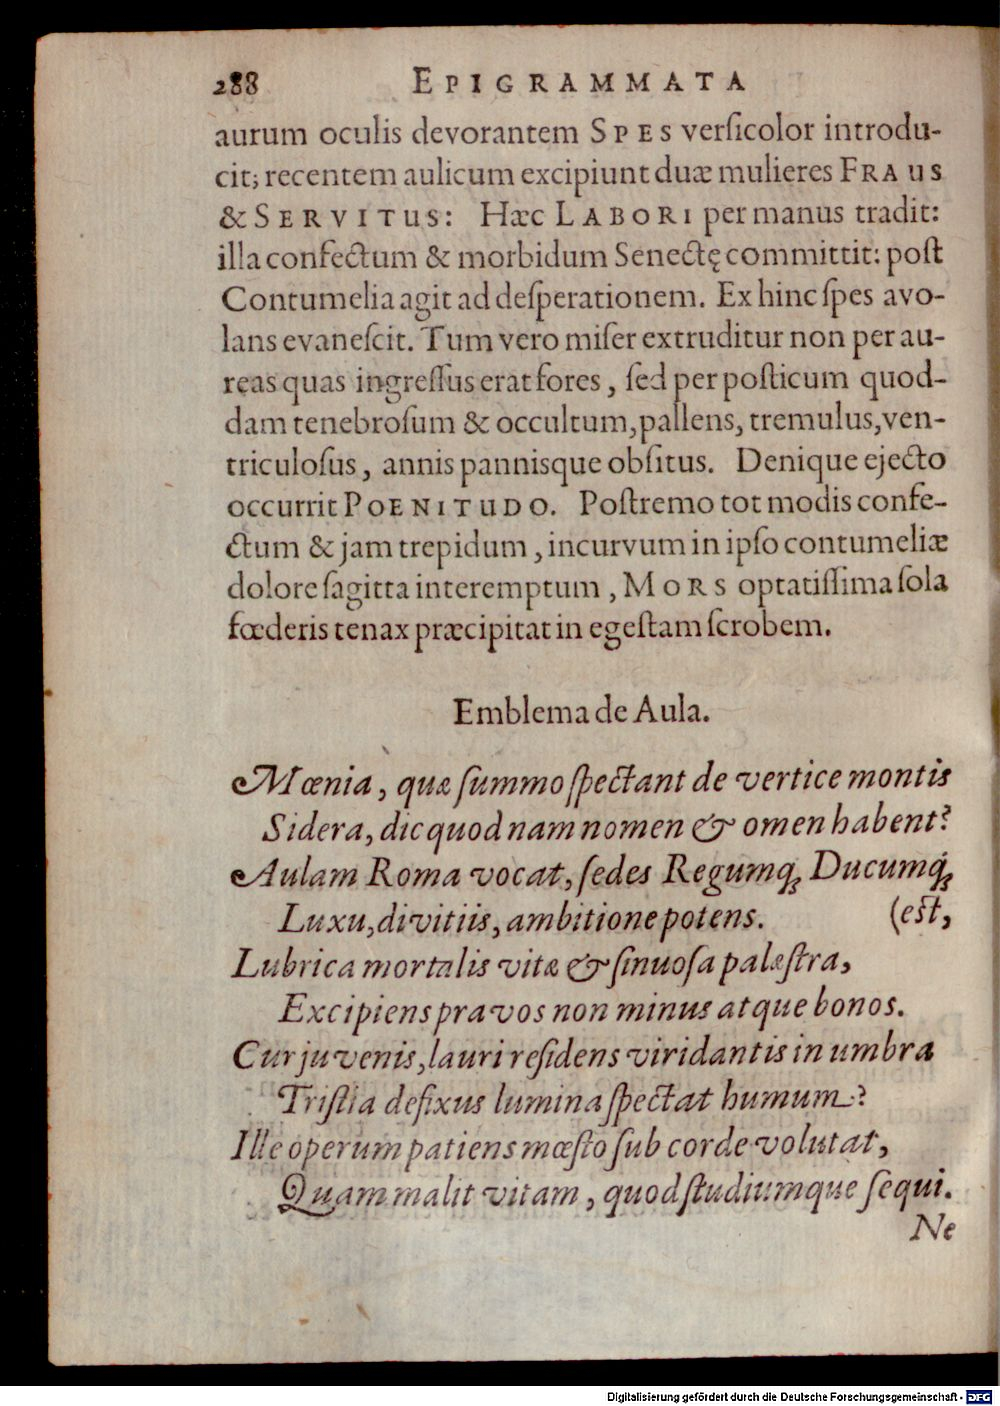 288 EPIGRAMMATA
aurum oculis devorantem SPES verſicolor introdu-
cit; recentem aulicum excipiunt duæ mulieres FRAUS
& SERVITUS: Hæc LABORI per manus tradit:
illa confectum & morbidum Senectę committit: poſt
Contumelia agit ad deſperationem. Ex hinc ſpes avo-
lans evaneſcit. Tum vero miſer extruditur non per au-
reas quas ingreſſus erat fores, ſed per poſticum quod-
dam tenebroſum & occultum, pallens, tremulus, ven-
triculoſus, annis panniſque obſitus. Denique ejecto
occurrit POENITUDO. Poſtremo tot modis confe-
ctum & jam trepidum, incurvum in ipſo contumeliæ
dolore ſagitta interemptum, MORS optatiſſima ſola
fœderis tenax præcipitat in egeſtam ſcrobem.
Emblema de Aula.
Mœnia, quæ ſummo ſpectant de vertice montis
Sidera, dic quod nam nomen & omen habent?
Aulam Roma vocat, ſedes Regumq́; Ducumq́;
Luxu, divitiis, ambitione potens. (est,
Lubrica mortalis vitæ & ſinuoſa palæſtra,
Excipiens pravos non minus atque bonos.
Cur juvenis, lauri reſidens viridantis in umbra
Triſtia defixus lumina ſpectat humum?
Ille operum patiens mœſto ſub corde volutat,
Quam malit vitam, quod ſtudiumque ſequi.
Ne
Digitalisierung gefördert durch die Deutsche Forschungsgemeinschaft - DFG